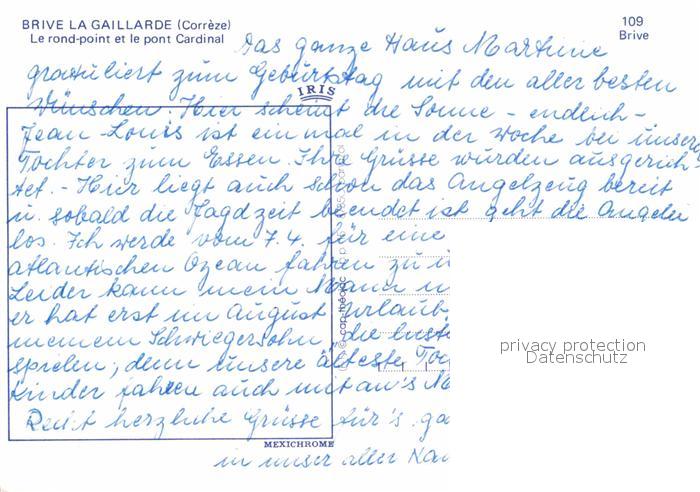 BRIVE LA GAILLARDE (Corrèze)
Le rond-point et le pont Cardinal
109
Brive
Das ganze Haus Martine
gratuliert zum Geburtstag mit den aller besten
IRIS
Wünschen. Hier scheint die Sonne - endlich -.
Jean-Louis ist einmal in der Woche bei unsere
Tochter zum Essen. Ihre Grüsse wurden ausgerich-
tet. - Hier liegt auch schon das Angelzeug bereit
u. sobald die Jagdzeit beendet ist geht die Angelei
los. Ich werde vom 7.4. für eine
atlantischen Ozean fahren zu
Leider kann mein Mann
er hat erst im August Urlaub.
meinem Schwiegersohn, die
spielen, denn unsere älteste
Kinder fahren auch mit an's
Recht herzliche Grüsse für's
MEXICHROME
in unser aller
privacy protection
Datenschutz